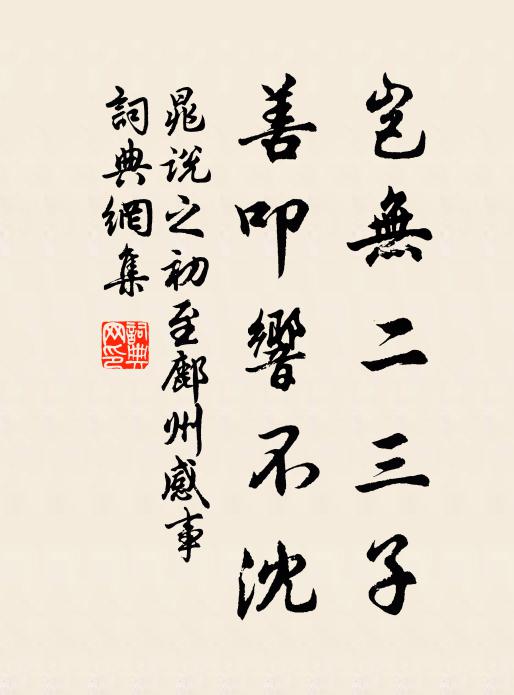 豈無二三子
善叩響不沈
晁說之初至鄜州感事
詞典網集
詞典網印